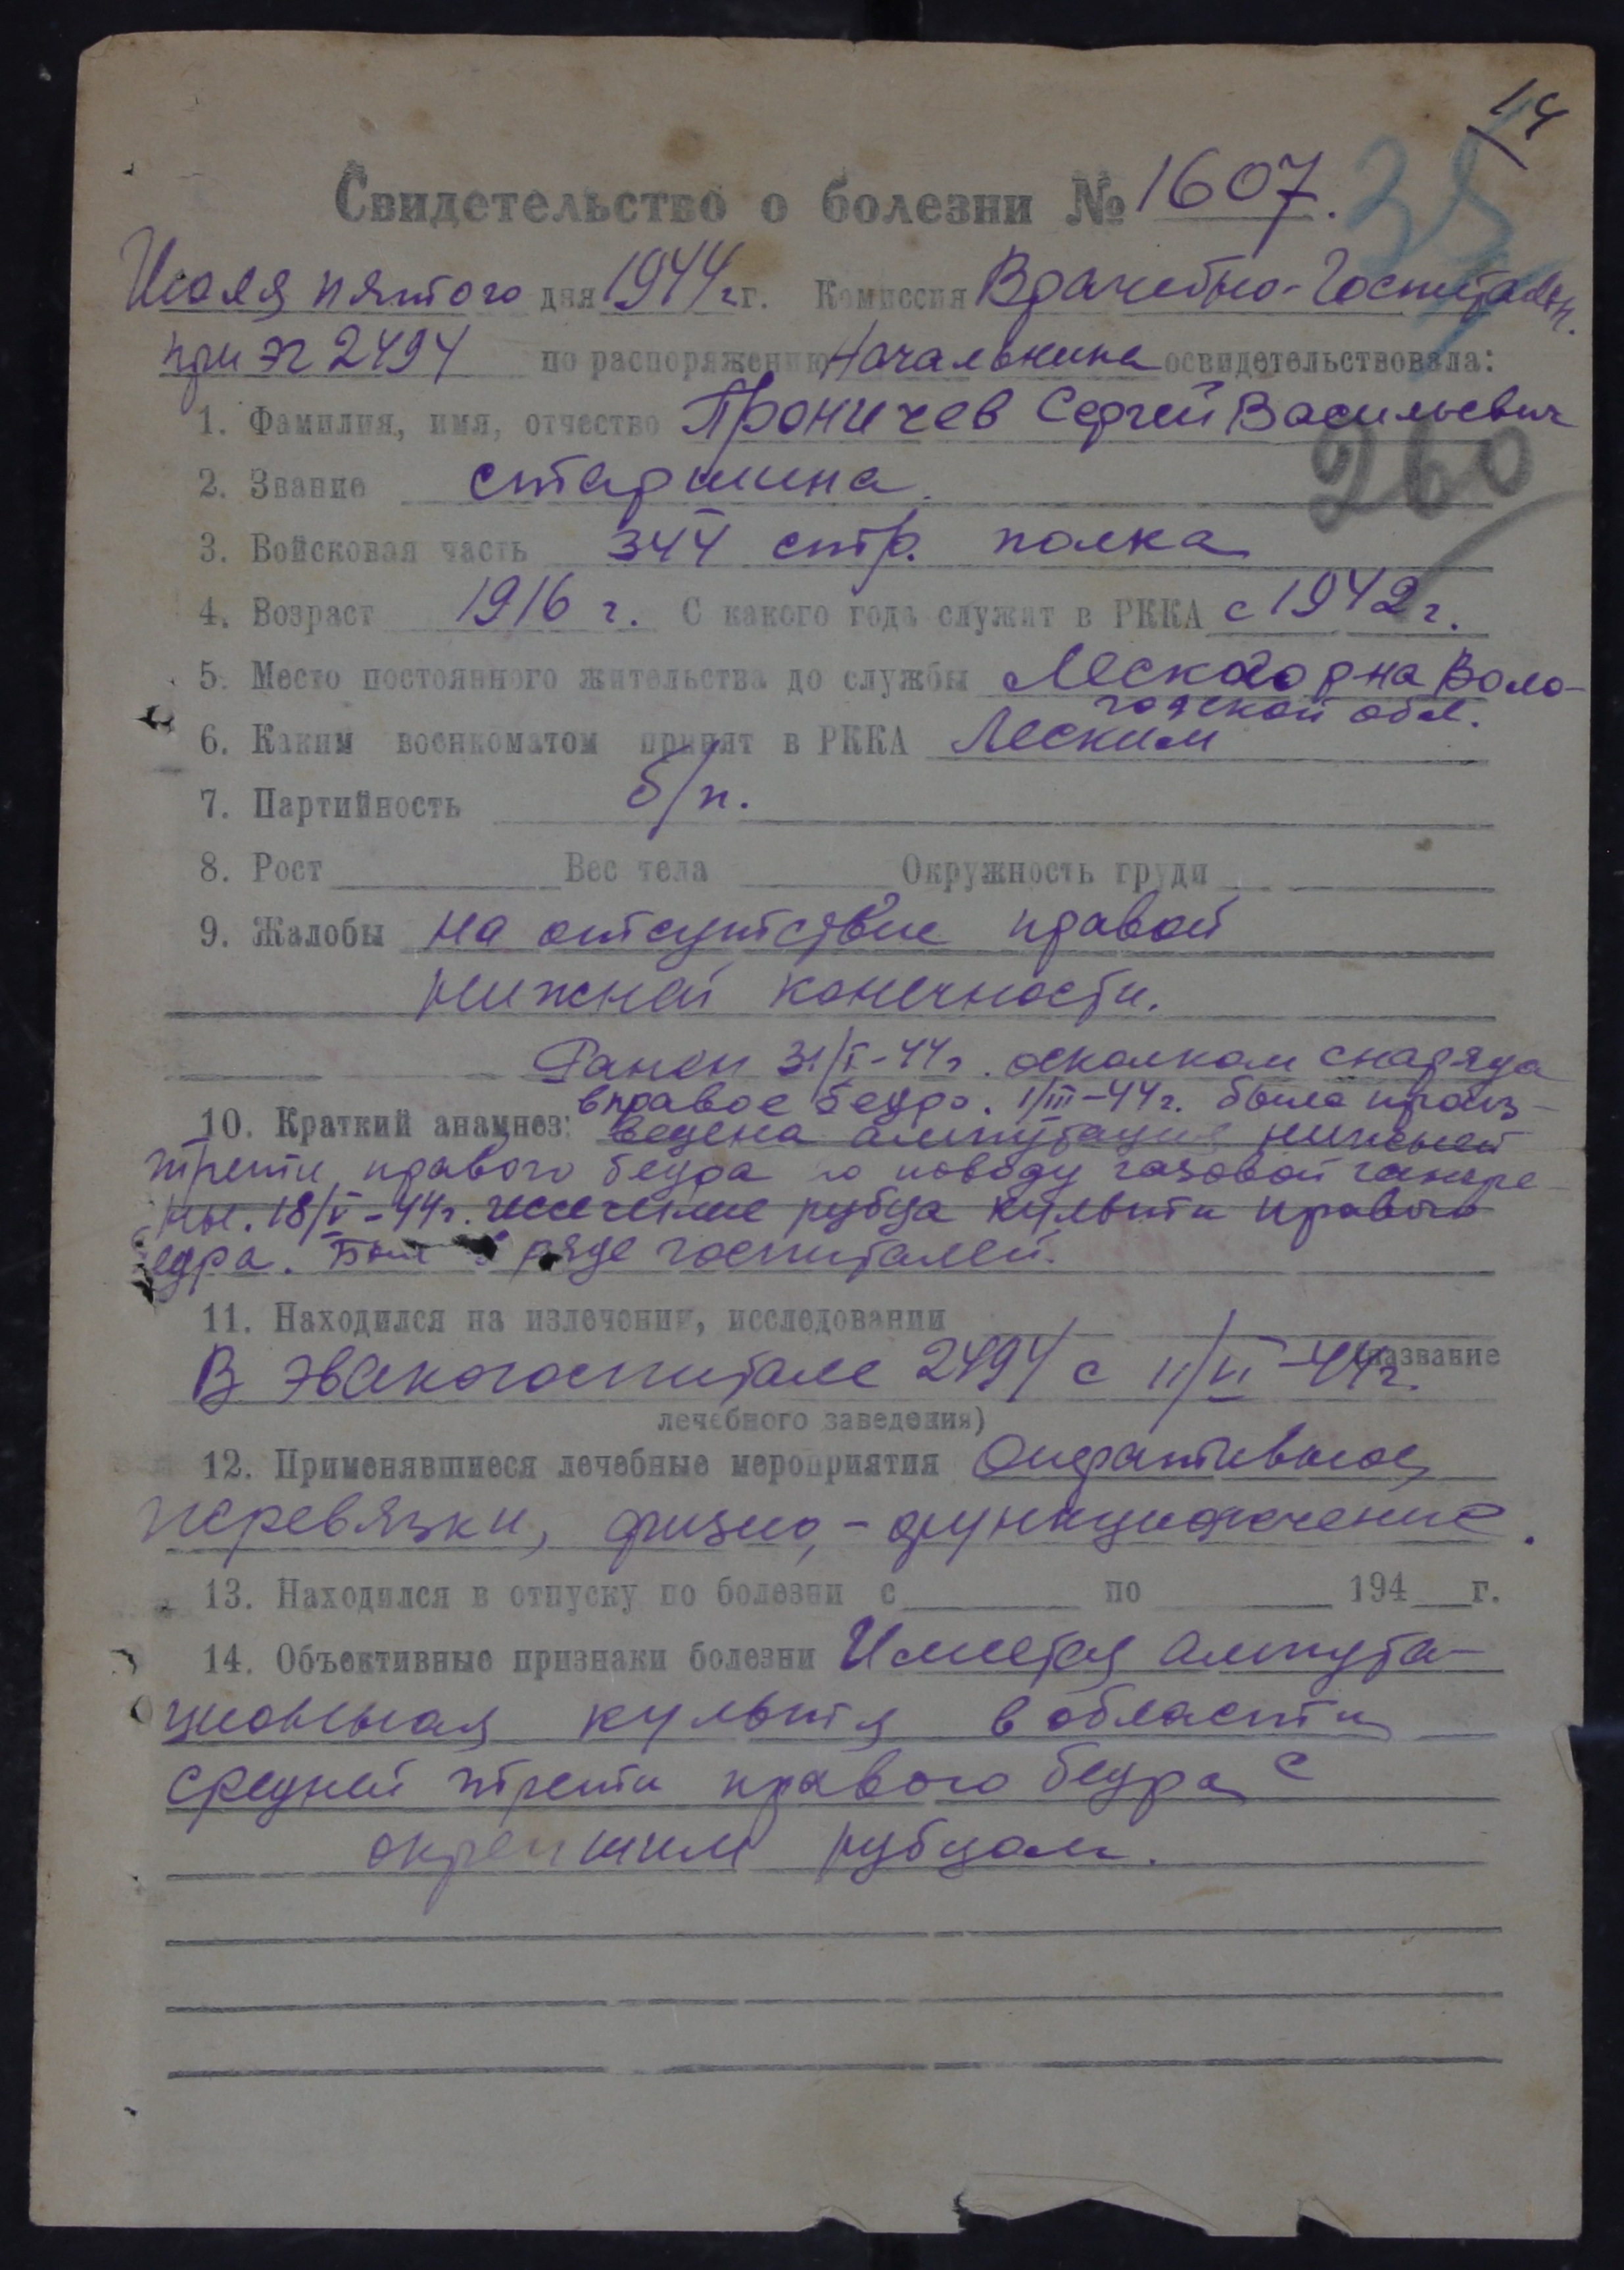 14
35
Свидетельство о болезни № 1607.
Июля пятого дня 1944 г. г. Комиссия Врачебно-Госпитальн.
при ЭГ 2494 по распоряжению Начальника освидетельствовала:
1. Фамилия, имя, отчество Проничев Сергей Васильевич
260
2. Звание старшина.
3. Войсковая часть 344 стр. полка
4. Возраст 1916 г. С какого года служит в РККА с 1942 г.
5. Место постоянного жительства до службы р-на Воло-
годской обл.
6. Каким военкоматом принят в РККА
7. Партийность б/п.
8. Рост Вес тела Окружность груди
9. Жалобы на отсутствие правой
нижней конечности.
Ранен 31/I-44г. осколком снаряда
в правое бедро. 1/III-44г. была произ-
10. Краткий анамнез: ведена ампутация нижней
трети правого бедра по поводу газовой гангре-
ны. 18/V-44г. иссечение рубца культи правого
бедра. Был в ряде госпиталей.
11. Находился на излечении, исследовании
(название
В эвакогоспитале 2494 с 11/VI-44г.
лечебного заведения)
12. Применявшиеся лечебные мероприятия Оперативное,
перевязки, физио,-функциолечение.
13. Находился в отпуску по болезни с по 194 г.
14. Объективные признаки болезни Имеется ампута-
ционная культя в области
средней трети правого бедра с
окрепшим рубцом.